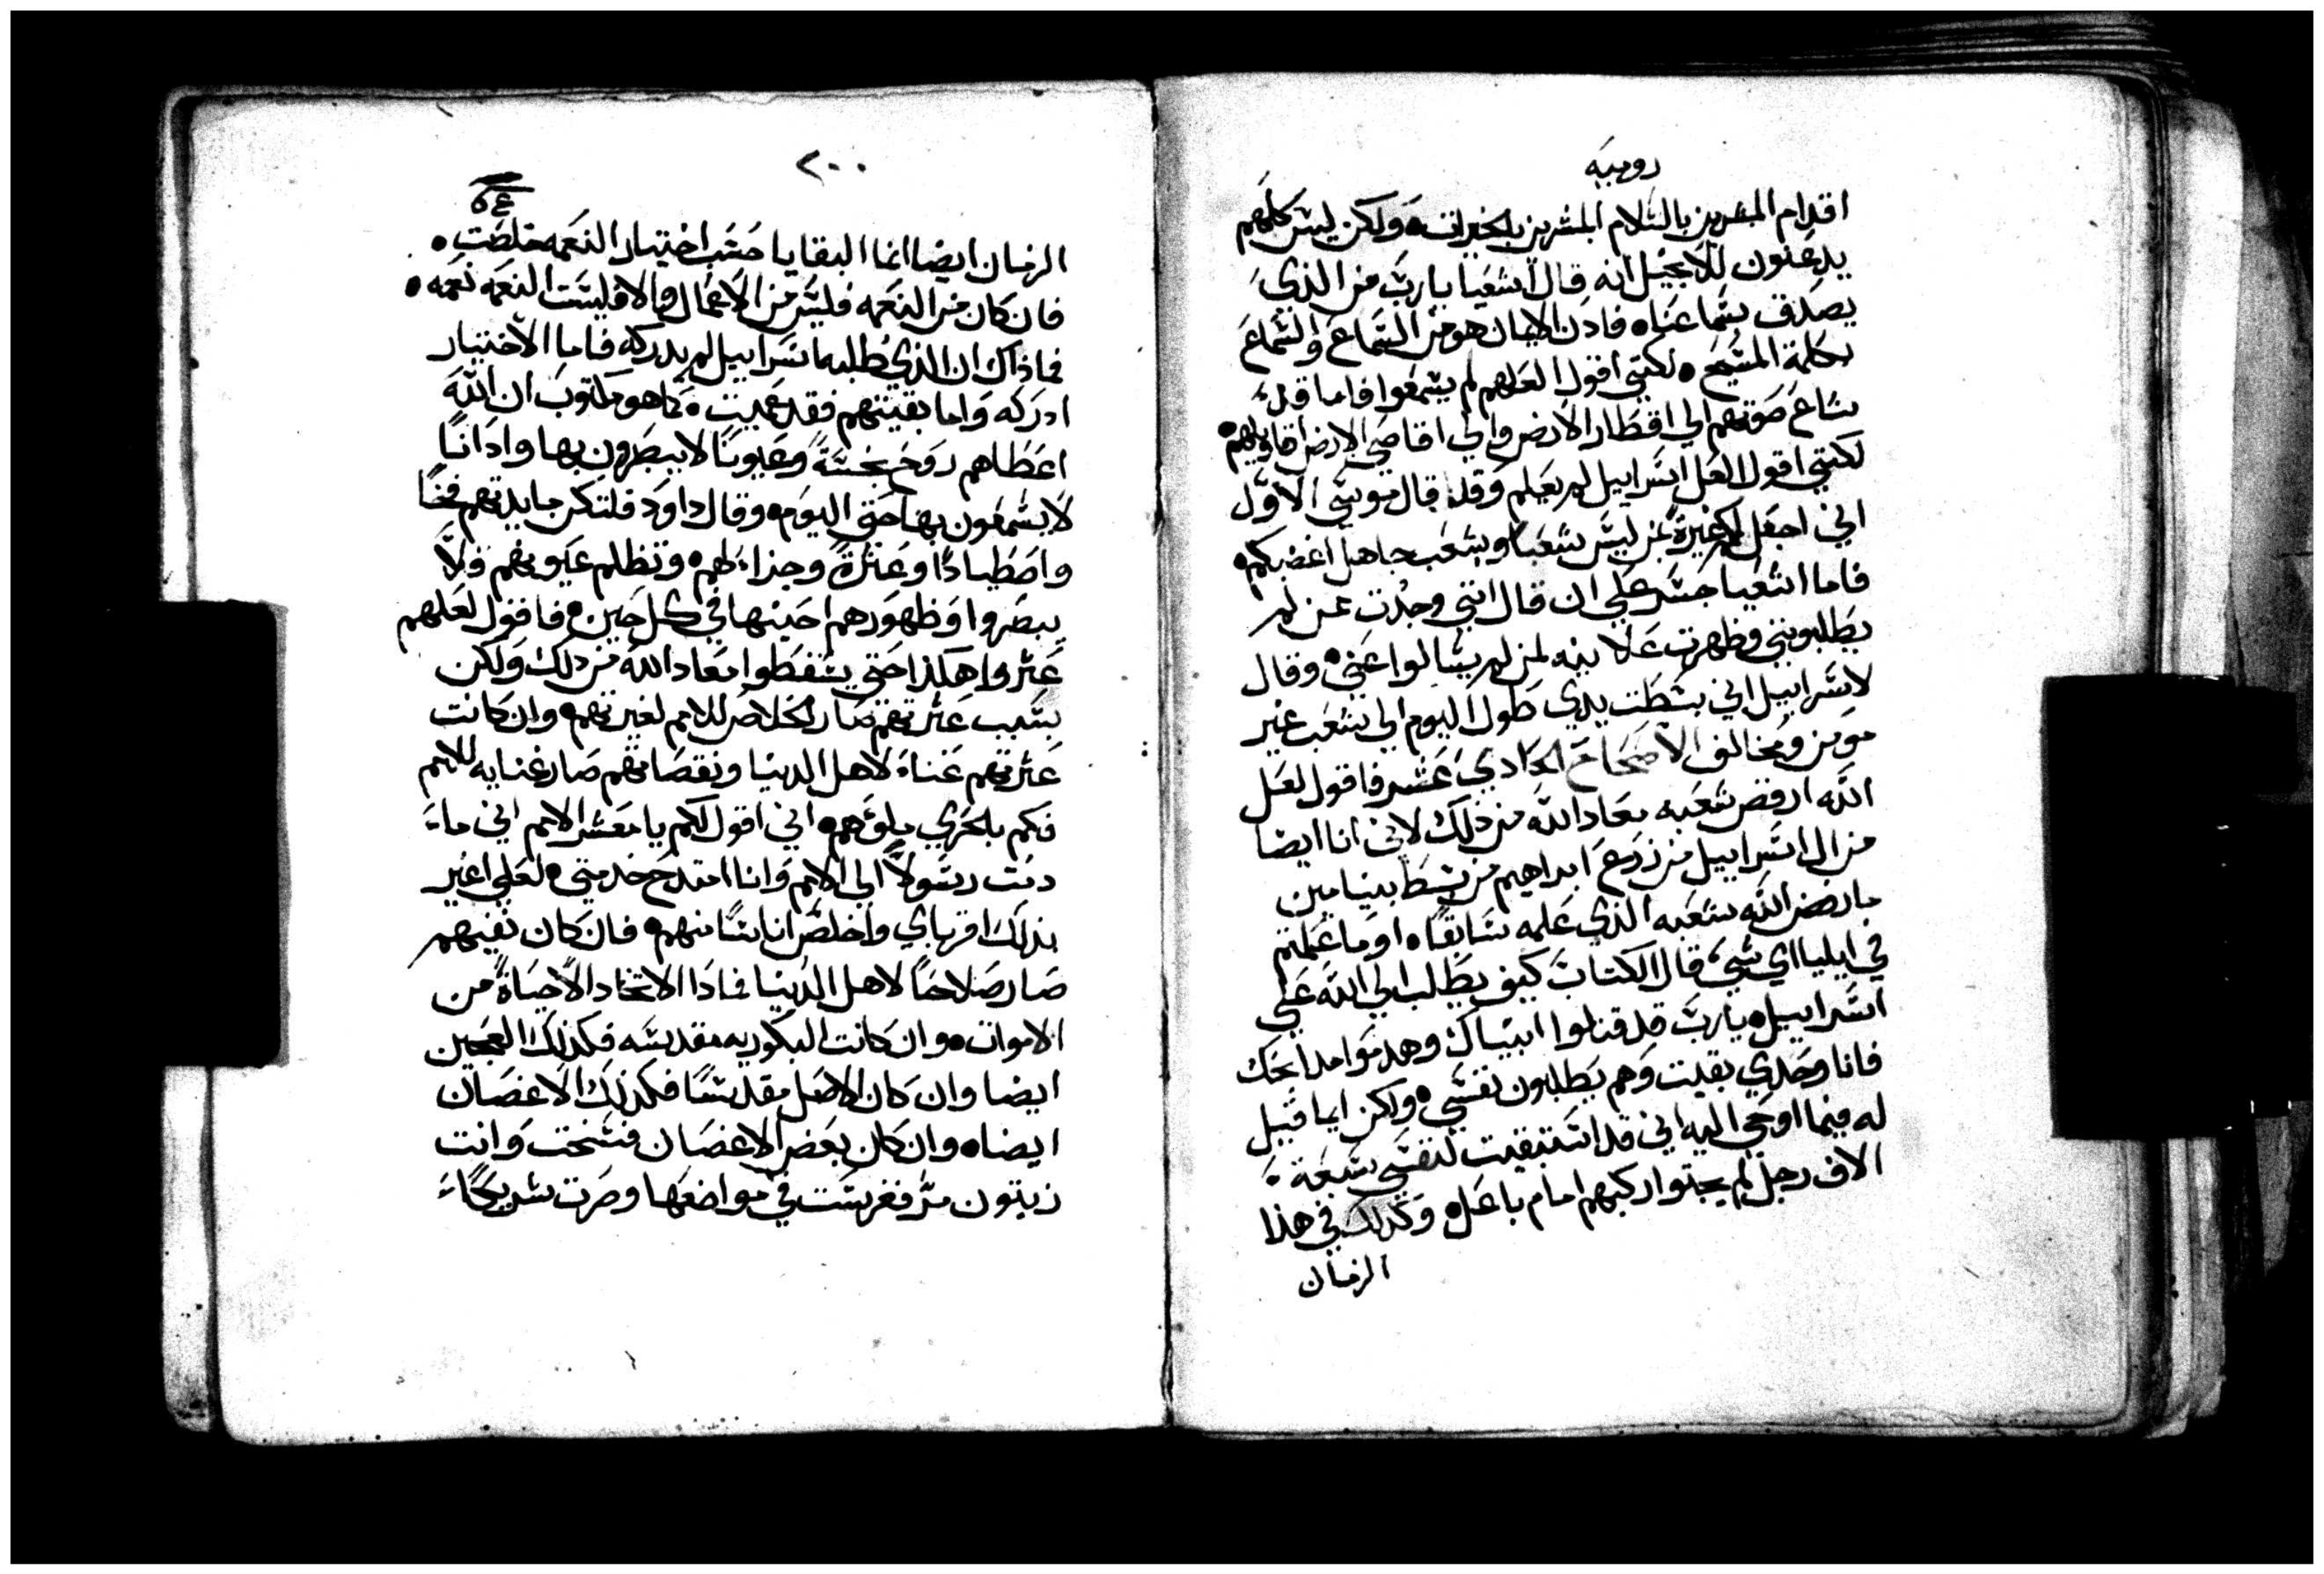 روميه
اقدام المبشرين بالسلام المبشرين بالخيرات ولكن ليس كلهم
يدعنون للانجيل انه قال اشعيا يارب من الذي
يصدق بسماعنا فادن الايمان هو من السماع والسماع
بكلمة المسيح لكنني اقول لعلهم لم يسمعوا فاما قد
شاع صوتهم الي اقطار الارض والي اقاصي الارض اقاويلهم
لكنني اقول لعل اسراييل لم يعلم وقد قال موسي الاول
اني اجعل لكم غيرة بمن ليس شعبا وبشعب جاهل اغضبكم
فاما اشعيا جسر علي ان قال انني وجدت عن لم
يطلبونني وظهرت علانيه لمن لم يسالوا عني وقال
لاسراييل اني بسطت يدي طول اليوم الي شعب غير
مومن ومخالف الاصحاح الحادي عشر فاقول لعل
الله ارفض شعبه معاد الله من ذلك لاني انا ايضا
من ال اسراييل من زرع ابراهيم من سبط بنيامين
ما رفض الله شعبه الذي علمه سابقا او ما علمتم
في ايليا اي شي قال الكتاب كيف يطلب الي الله علي
اسراييل يارب قد قتلوا انبياك وهدموا مدابحك
فانا وحدي بقيت وهم يطلبون نفسي ولكن ايما قيل
له فيما اوحي اليه اني قد استبقيت لنفسي سبعة
الاف رجل لم يجثوا ركبهم امام باعل وكذلك في هذا
الزمان
٢٠٠
الزمان ايضا انما البقايا حسب اختيار النعمه خلصت
فان كان من النعمه فليس من الاعمال والا فليست النعمه نعمه
فماذاك ان الذي طلبه اسراييل لم يدركه فاما الاختيار
ادركه واما بقيتهم فقد عميت كما هو مكتوب ان الله
اعطاهم روح بخسة وعيونا لا يبصرون بها واذانا
لا يسمعون بها حتي اليوم وقال داود فلتكن مايدتهم فخا
واصطيادا وعثرة وجزاء لهم وتظلم عيونهم فلا
يبصروا وظهورهم احنيها في كل حين فاقول لعلهم
عثروا هكذا حتي يسقطوا معاد الله من ذلك ولكن
بسبب عثرتهم صار الخلاص للامم لغيرتهم وان كانت
عثرتهم غناء لاهل الدنيا ونقصانهم صار غنايه للامم
فكم بالحري ملوهم اني اقول لكم يا معشر الامم اني ما
دمت رسولا الي الامم وانا امتدح خدمتي لعلي اغير
بذلك اقرباي واخلص اناسا منهم فان كان نفيهم
صار صلاحا لاهل الدنيا فماذا الاتخاد الا حياة من
الاموات وان كانت البكوريه مقدسه فكذلك العجين
ايضا وان كان الاصل مقدسا فكذلك الاغصان
ايضا وان كان بعض الاغصان فسخت وانت
زيتون مر فغرست في مواضعها وصرت شريكا